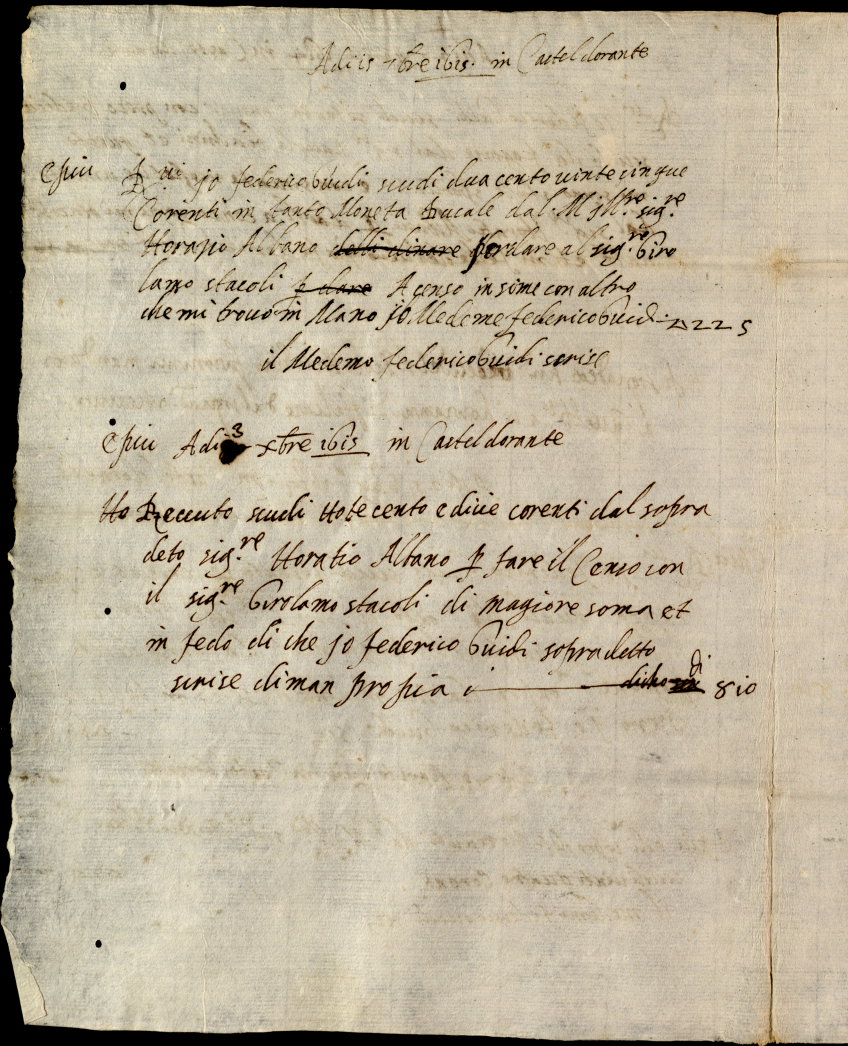 Adi is xbre 1615. in Casteldorante
E piu R. vi jo federico Guidi scudi dua cento uinte cinque
Corenti in tanto Moneta Ducale dal. M. Ill.re sig.re
Horazio Albano delli dinare per dare al sig.re Giro
lamo stacoli p dare A censo insime con altro
che mi trouo in Mano jo Medeme federico Guidi 225
il Medemo federico Guidi scrise
E piu Adi 3 xbre 1615 in Casteldorante
Ho Receuto scudi Hote cento e diue corenti dal sopra
deto sig.re Horatio Albano p fare il Censo con
il sig.re Girolamo stacoli di magiore soma et
in fede di che jo federico Guidi sopradetto
scrise di man propia di 810